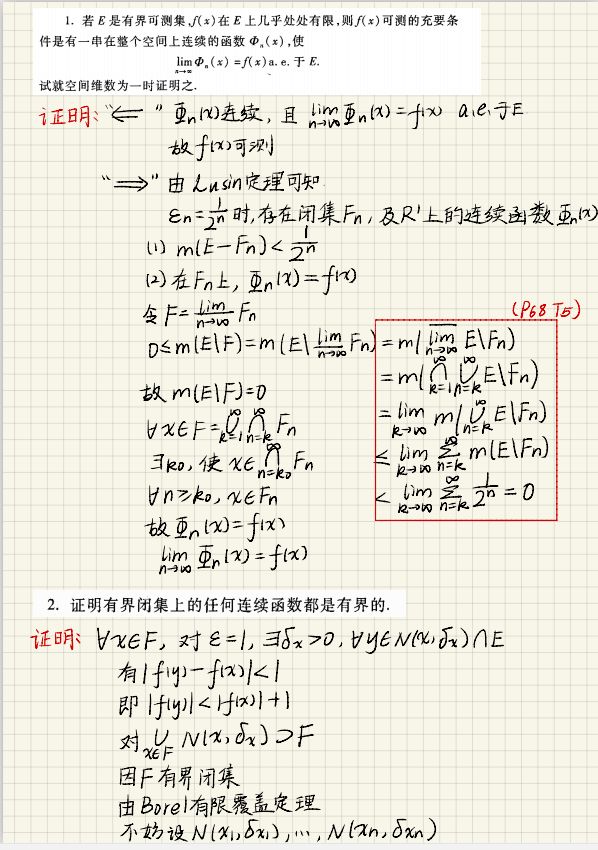 1. 若 E 是有界可测集,f(x)在 E 上几乎处处有限,则f(x)可测的充要条
件是有一串在整个空间上连续的函数 Φₙ(x),使
lim Φₙ(x) = f(x) a. e. 于 E.
n→∞
试就空间维数为一时证明之.
证明: “⇐” Φₙ(x)连续, 且 lim n→∞ Φₙ(x) = f(x) a.e. 于E
故 f(x)可测
“⟹” 由 Lusin定理可知
εn = 1/2ⁿ 时, 存在闭集Fn, 及R¹上的连续函数Φₙ(x)
(1) m(E-Fn) < 1/2ⁿ
(2) 在Fn上, Φₙ(x) = f(x)
(P68 T5)
令 F = lim n→∞ Fn
0≤m(E\F) = m(E\ lim n→∞ Fn) = m( lim n→∞ E\Fn)
= m(∩ k=1 ∞ ∪ n=k ∞ E\Fn)
故 m(E\F)=0
= lim k→∞ m(∪ n=k ∞ E\Fn)
∀x∈F = ∪ k=1 ∞ ∩ n=k ∞ Fn
≤ lim k→∞ Σ n=k ∞ m(E\Fn)
∃k₀, 使 x∈ ∩ n=k₀ ∞ Fn
< lim k→∞ Σ n=k ∞ 1/2ⁿ = 0
∀n≥k₀, x∈Fn
故 Φₙ(x) = f(x)
lim n→∞ Φₙ(x) = f(x)
2. 证明有界闭集上的任何连续函数都是有界的.
证明: ∀x∈F, 对 ε=1, ∃δx>0, ∀y∈N(x,δx)∩E
有|f(y)-f(x)|<1
即 |f(y)|<|f(x)|+1
对 ∪ x∈F N(x,δx) ⊃ F
因F有界闭集
由Borel有限覆盖定理
不妨设N(x₁,δx₁), ⋯, N(xn,δxn)